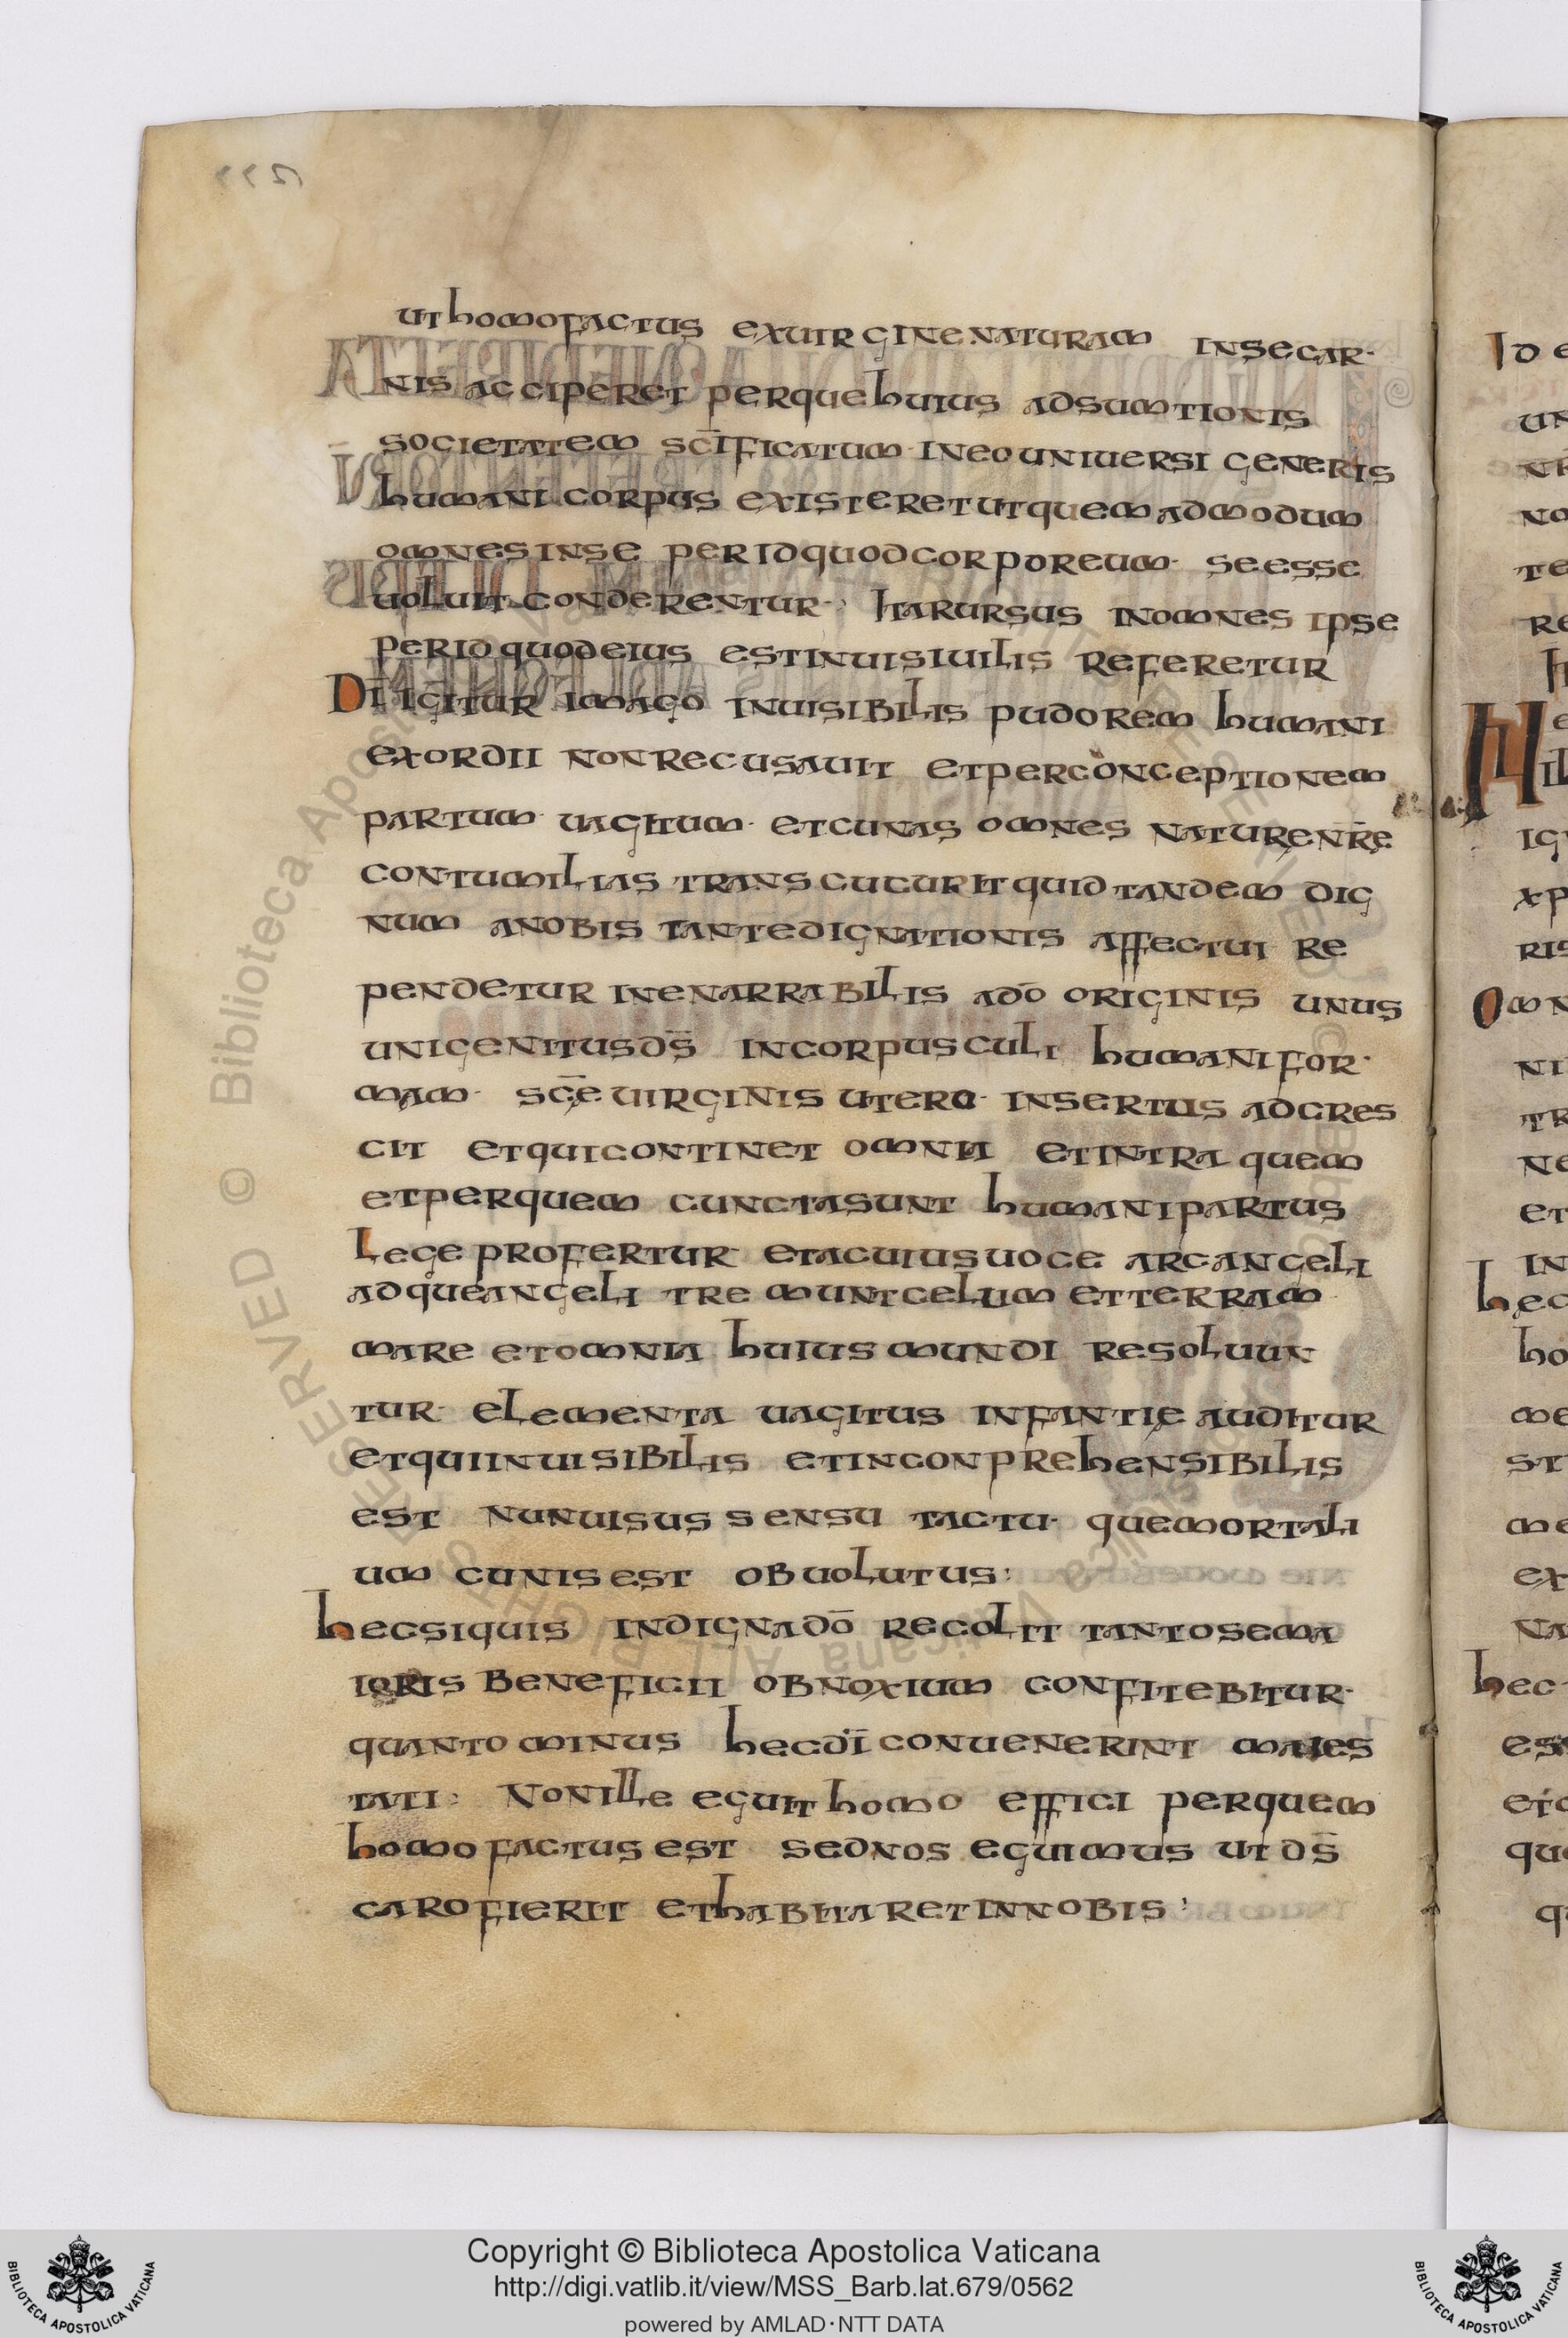 ut homo factus ex uirgine naturam in se car·
nis acciperet per que huius adsumtionis
societatem sc̄ificatum· in eo uniuersi generis
humani corpus existeret ut quem ad modum
omnes in se per id quod corporeum· se esse
uoluit conderentur· Ita rursus in omnes ipse
per id quod eius est inuisiuilis referetur
Dī igitur imago inuisibilis pudorem humani
exordii non recusauit et per conceptionem
partum· uagitum· et cunas omnes naturę nr̄ę
contumilias transcucurit quid tandem dig
num a nobis tante dignationis affectui re
pendetur inenarrabilis a dō originis unus
unigenitus ds̄ in corpusculi humani for·
mam· sc̄ę uirginis utero· insertus adcres
cit et qui continet omnia et intra quem
et per quem cuncta sunt humani partus
Lege profertur· et a cuius uoce arcangeli
adque angeli tremunt celum et terram
mare et omnia huius mundi resoluun
tur· elementa uagitus infantię auditur
et qui inuisibilis et inconprehensibilis
est nunuisus sensu tactu· que mortali
um cunis est obuolutus:
hec si quis indigna dō recolit tanto se ma
ioris beneficii obnoxium confitebitur·
quanto minus hec dī conuenerint maies
tati: Non ille eguit homo effici per quem
homo factus est sed nos eguimus ut ds̄
caro fierit et habitaret in nobis:
Copyright © Biblioteca Apostolica Vaticana
http://digi.vatlib.it/view/MSS_Barb.lat.679/0562
powered by AMLAD·NTT DATA
BIBLIOTECA APOSTOLICA VATICANA
BIBLIOTECA APOSTOLICA VATICANA